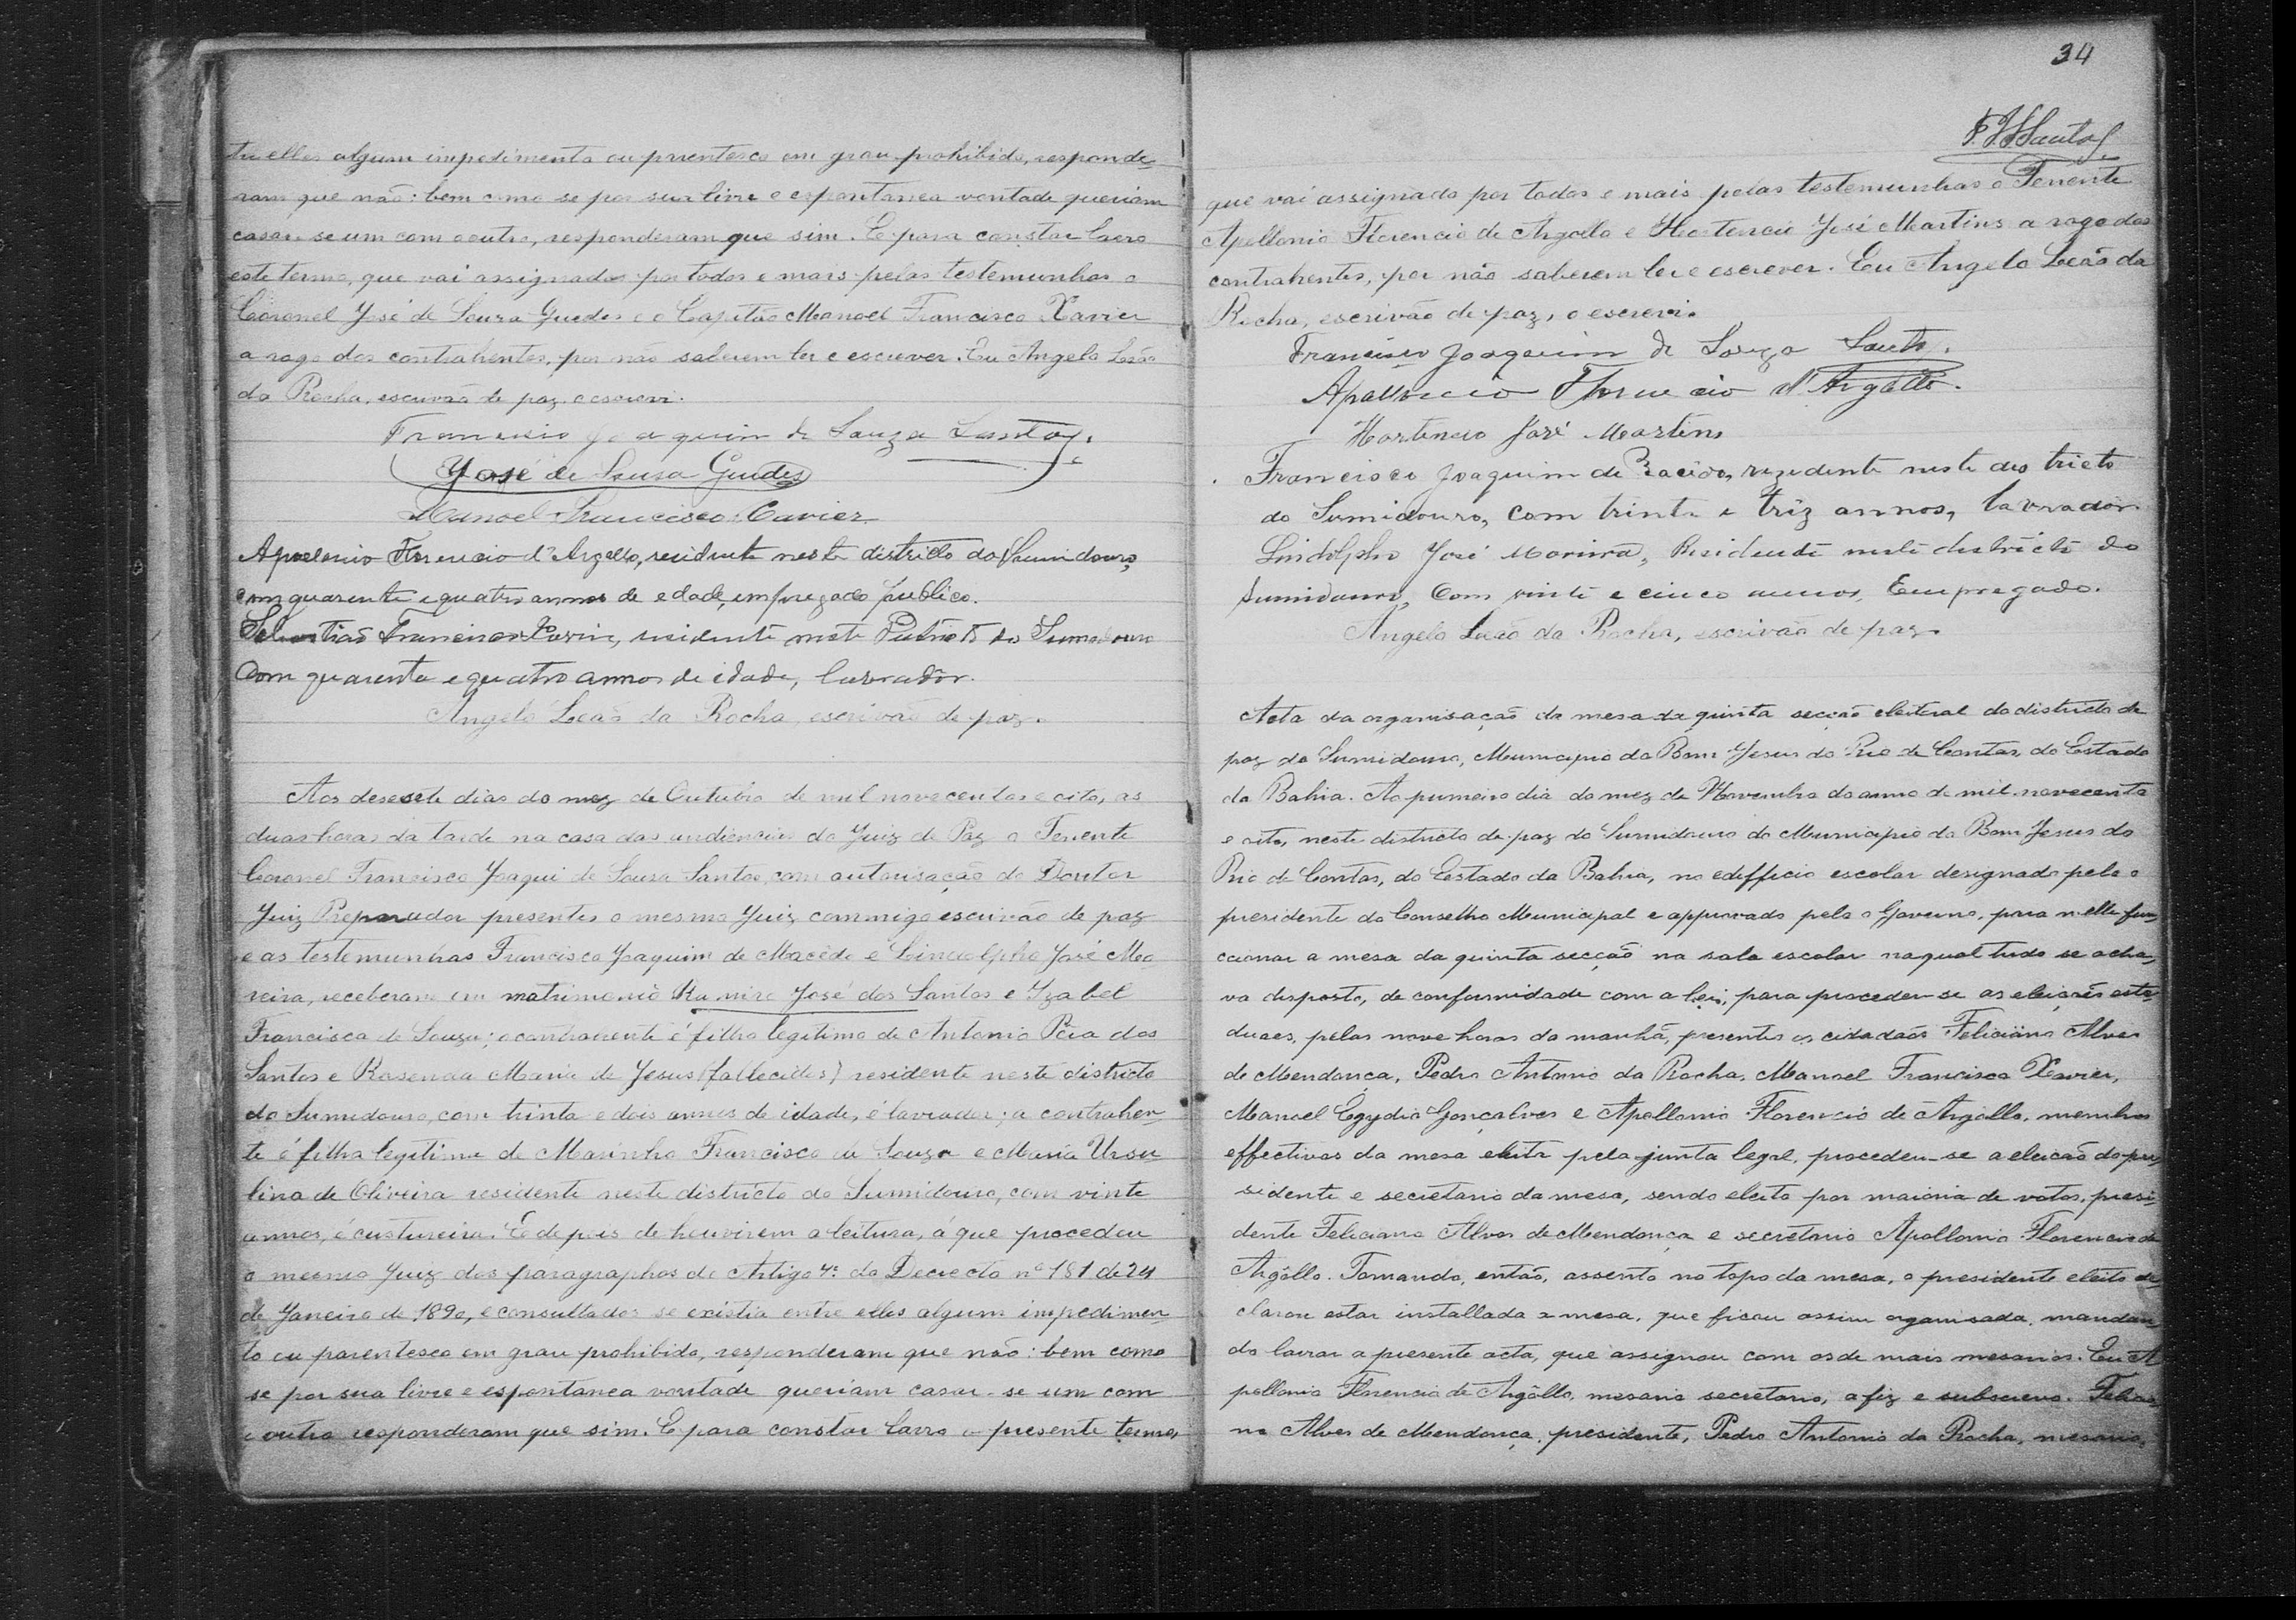 tre elles algum impedimento ou parentesco em grau prohibido, responde-
ram que não: bem como se por sua livre e espontanea vontade queriam
casar-se um com o outro, responderam que sim. E para constar lavro
este termo, que vai assignado por todos e mais pelas testemunhas o
Coronel José de Souza Guedes e o Capitão Manoel Francisco Xavier
a rogo dos contrahentes, por não saberem ler e escrever. Eu Angelo Leão
da Rocha, escrivão de paz o escrevi.
Francisco Joaquim de Souza Santos.
José de Sousa Guedes
Manoel Francisco Xavier
Apolonio Florencio d'Argollo, residente neste districto do Sumidouro,
com quarenta e quatro annos de edade, empregado publico.
Sebastião Francisco Xavier, residente neste do Sumidouro
Com quarenta e quatro annos de idade, lavrador.
Angelo Leão da Rocha, escrivão de paz.
Aos desesete dias do mez de Outubro de mil novecentos e oito, as
duas horas da tarde na casa das audiencias do Juiz de Paz o Tenente
Coronel Francisco Joaqui de Sousa Santos, com autorisação do Doutor
Juiz Preparador presentes o mesmo Juiz, commigo escrivão de paz
e as testemunhas Francisco Joaquim de Macêdo e Lindolpho José Mo-
reira, receberam em matrimonio Ramiro José dos Santos e Izabel
Francisca de Souza; o contraente é filho legitimo de Antonio Pêia dos
Santos e Rosenda Maria de Jesus (fallecidos) residente neste districto
do Sumidouro, com trinta e dois annos de idade, é lavrador; a contrahen-
te é filha legitima de Marinho Francisco de Souza e Maria Ursu-
lina de Oliveira residente neste districto do Sumidouro, com vinte
annos, é custureira. E depois de houvirem a leitura, á que procedeu
o mesmo Juiz dos paragraphos do Artigo 4º do Decrecto nº 181 de 24
de Janeiro de 1890, e consultados se existia entre elles algum impedimen-
to ou parentesco em grau prohibido, responderam que não: bem como
se por sua livre e espontanea vontade queriam casar-se um com
o outro responderam que sim. E para constar lavro o presente termo,
34
F. J. S. Santos
que vai assignado por todos e mais pelas testemunhas o Tenente
Apollonio Florencio de Argollo e Hortencio José Martins a rogo dos
contrahentes, por não saberem ler e escrever. Eu Angelo Leão da
Rocha, escrivão de paz, o escrevi.
Francisco Joaquim de Souza Santos.
Apollonio Florencio d'Argollo.
Hortencio José Martins
Francisco Joaquim de Macêdo, rezidente neste destricto
do Sumidouro, com trinta e triz annos, lavrador
Lindolpho José Moreira, Residente neste destricto do
Sumidouro, Com vinte e cinco annos, Empregado.
Angelo Leão da Rocha, escrivão de paz.
Acta da organisação da mesa da quinta secção eleitoral do districto de
paz do Sumidouro, Municipio do Bom Jesus do Rio de Contas, do Estado
da Bahia. Ao primeiro dia do mez de Novembro do anno de mil novecento
e oito, neste districto de paz do Sumidouro do Municipio do Bom Jesus do
Rio de Contas, do Estado da Bahia, no edifficio escolar designado pelo o
presidente do Conselho Municipal e approvado pelo o Governo, para nelle fun-
ccionar a mesa da quinta secção na sala escolar na qual tudo se acha-
va disposto, de conformidade com a lei, para proceder-se as eleições esta-
duaes, pelas nove horas da manhã, presentes os cidadãos Feliciano Alves
de Mendonça, Pedro Antonio da Rocha, Manoel Francisco Xavier,
Manoel Egydio Gonçalves e Apollonio Florencio de Argollo, membros
effectivos da mesa eleita pela junta legal, procedeu-se a eleicão do pre-
sidente e secretario da mesa, sendo eleito por maioria de votos, presi-
dente Feliciano Alves de Mendonça e secretario Apollonio Florencio de
Argôllo. Tomando, então, assento no topo da mesa, o presidente eleito de-
clarou estar installada a mesa, que ficou assim organisada, mandan-
do lavrar a presente acta, que assignou com os de mais mesarios. Eu A-
pollonio Florencio de Argôllo, mesario secretario, a fiz e subscrevo. Felicia-
no Alves de Mendonça, presidente, Pedro Antonio da Rocha, mesario,